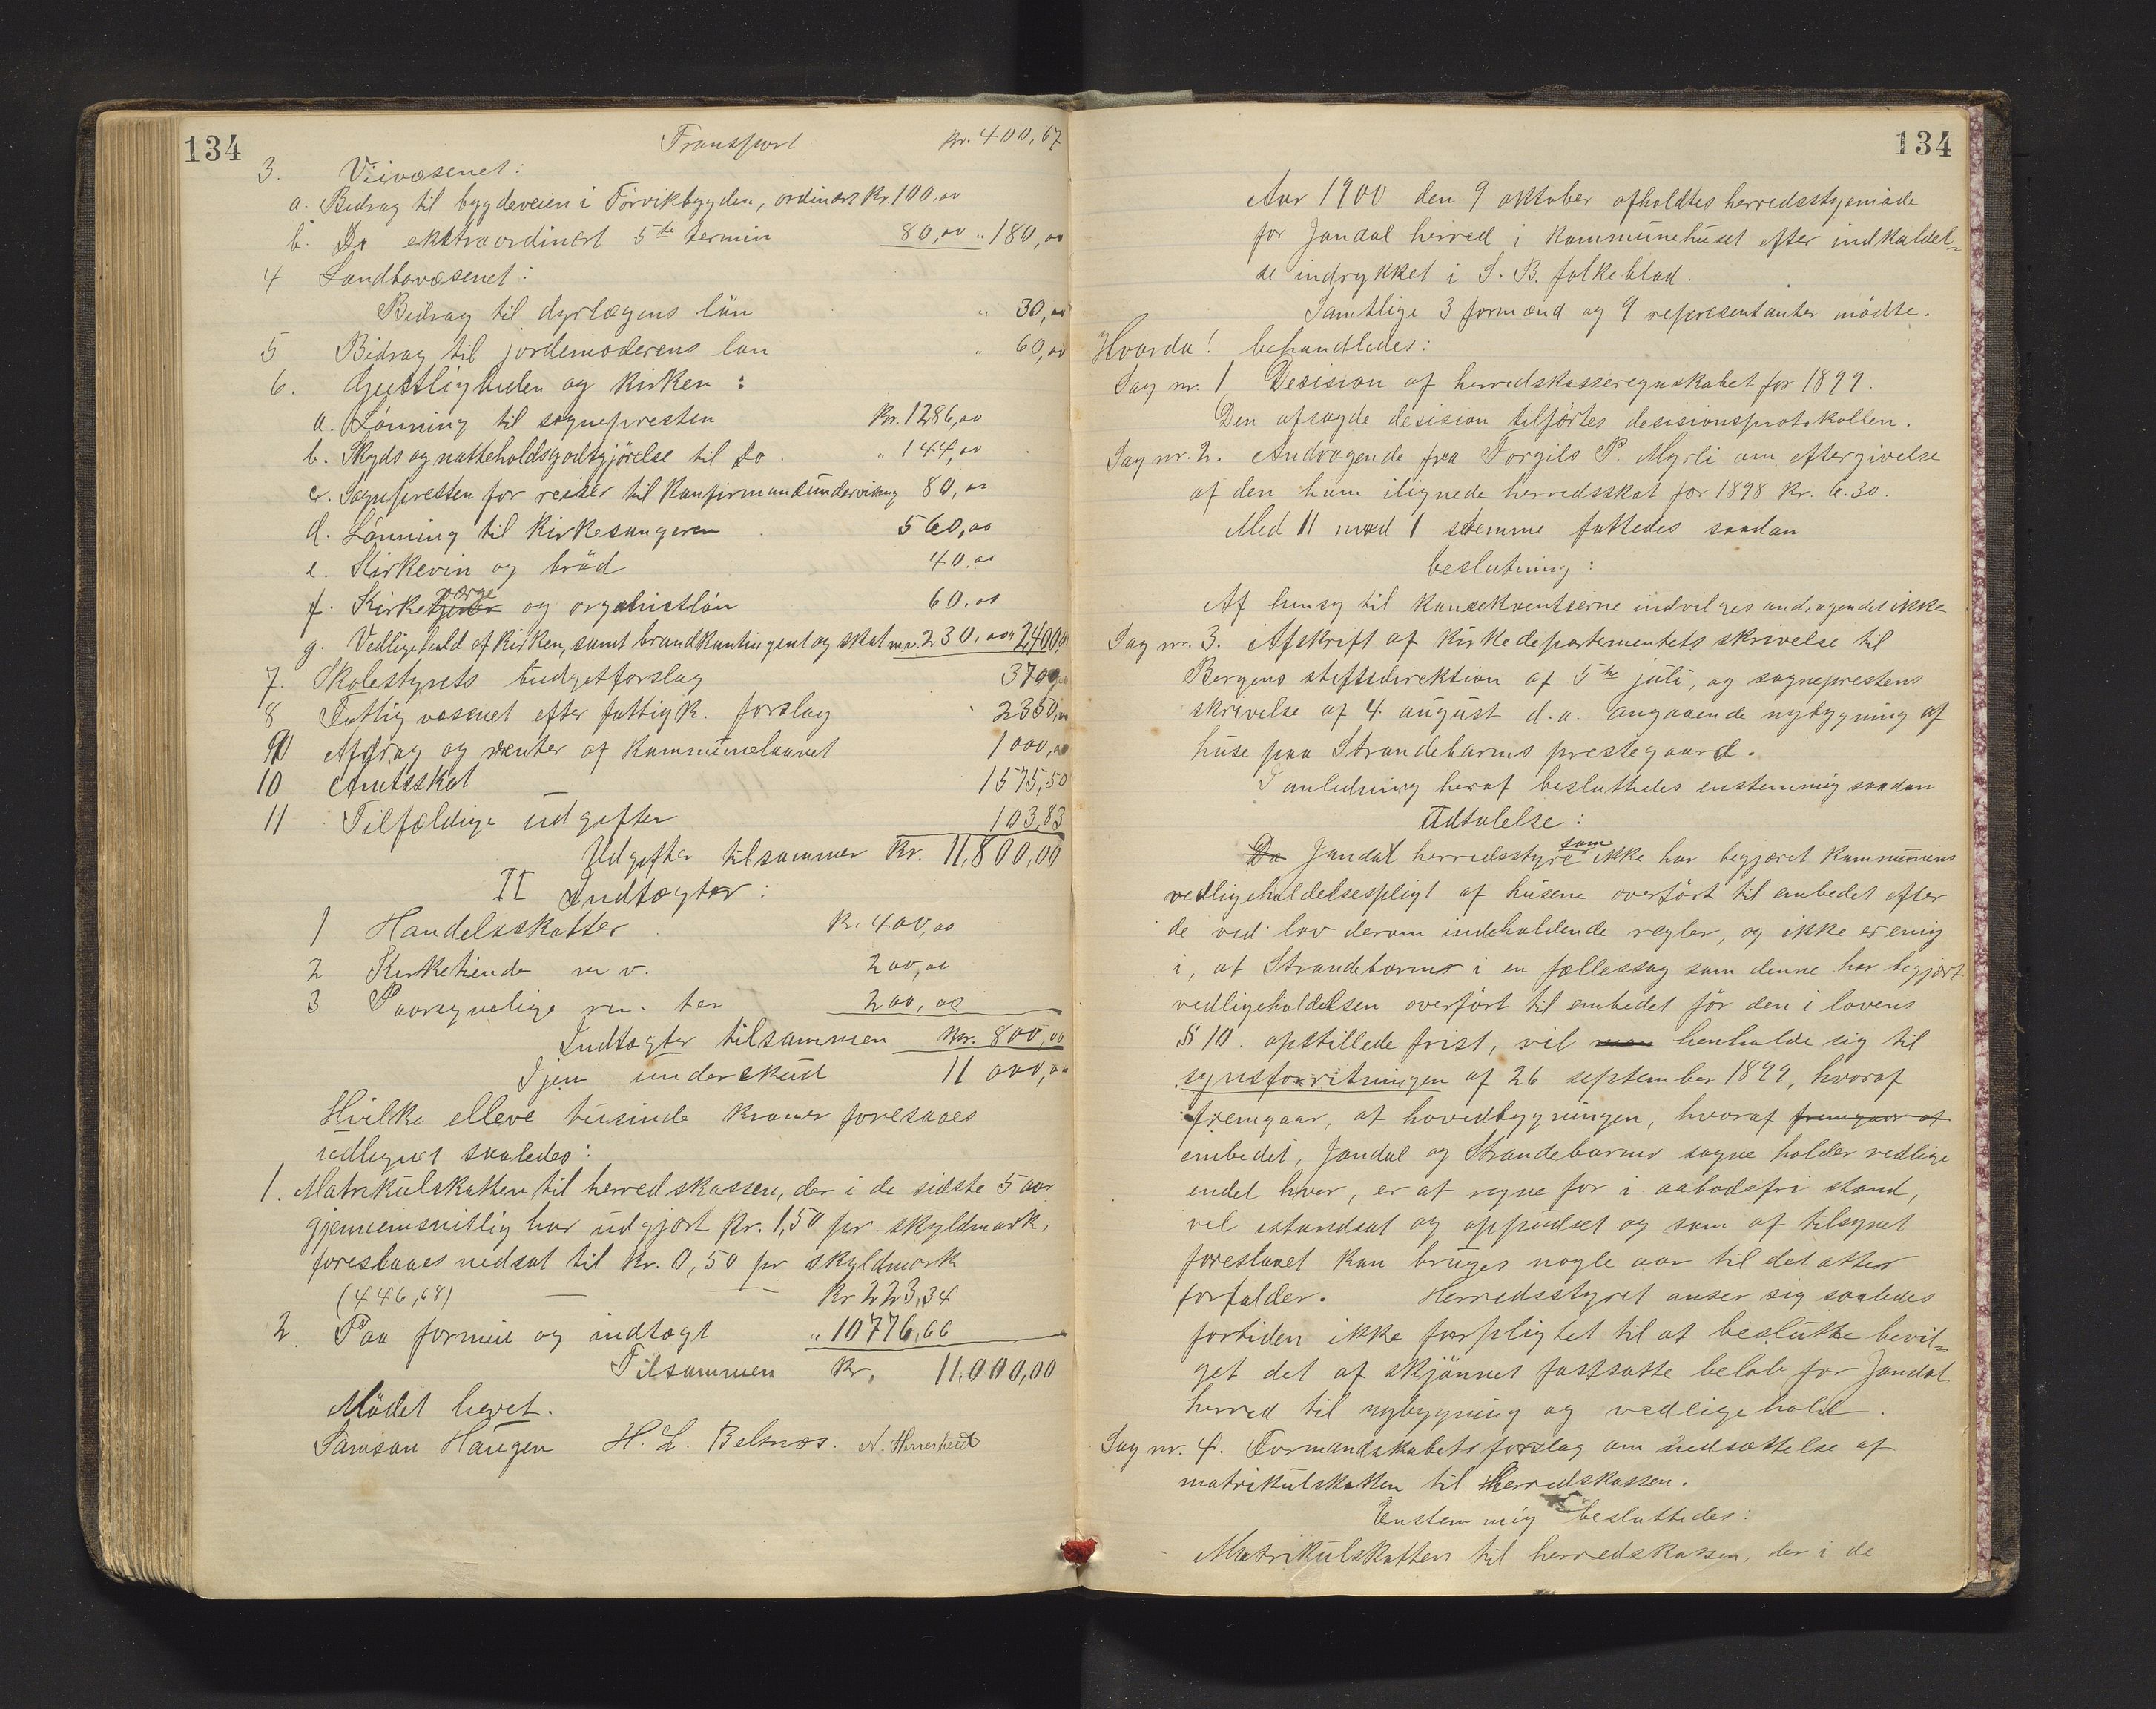 134
Transport kr. 400,67
3. Veivæsenet:
a. Bidrag til bygdeveien i Torvikbygden, ordinært kr. 100,00
b. Do ekstraordinært 5te termin 80,00 " 180,00
4 Landbovæsenet:
Bidrag til dyrlægens løn " 30,00
5 Bidrag til jordemoderens løn " 60,00
6. Geistligheden og kirken:
a. Lønning til sognepresten kr. 1286,00
b. Skyds og natteholdsgodtgjørelse til Do. " 144,00
c. Sognepresten for reiser til konfirmandundervisning 80,00
d. Lønning til kirkesangeren 560,00
e. Kirkevin og brød 40,00
f. Kirketjener værge og organistløn 60,00
g. Vedligehold af kirken, samt brandkontingent og skat m.v. 230,00 " 2400,00
7. Skolestyrets budgetforslag 3700,00
8 Fattigvæsenet efter fattigk. forslag 2350,00
9 Afdrag og renter af kommunelaanet 1000,00
10 Amtsskat 1575,50
11 Tilfældige udgifter 103,83
Udgifter tilsammen kr. 11,800,00
II Indtægter:
1 Handelsskatter kr. 400,00
2 Kirketiende m v. 200,00
3 Paaregnelige ren. ter 200,00
Indtægter tilsammen kr. 800,00
Igjen underskud 11 000,00
Hvilke elleve tusinde kroner foreslaaes
udlignet saaledes:
1. Matrikulskatten til herredskassen, der i de sidste 5 aar
gjennemsnitlig har udgjort kr. 1,50 pr. skyldmark,
foreslaaes nedsat til kr. 0,50 pr skyldmark
(446,68) — — kr 223,34
2. Paa formue og indtægt " 10776,66
Tilsammen kr. 11.000,00
Mødet hevet.
Samson Haugen H. L. Belsnæs. N. Herresheid
134
Aar 1900 den 9 oktober afholdtes herredsstyremøde
for Jondal herred i kommunehuset efter indkaldel-
se indrykket i S. B. folkeblad.
Samtlige 3 formænd og 9 representanter mødte.
Hvorda! behandledes:
Sag nr. 1 Desision af herredskasseregnskabet for 1899.
Den afsagde desision tilførtes desisionsprotokollen.
Sag nr. 2. Andragende fra Torgils P. Myrli om eftergivelse
af den ham ilignede herredsskat for 1898 kr. 6.30.
Med 11 mod 1 stemme fattedes saadan
beslutning:
Af hensyn til konsekventserne indvilges andragendet ikke
Sag nr. 3. Afskrift af kirkedepartementets skrivelse til
Bergens stiftsdirektion af 5te juli, og sogneprestens
skrivelse af 4 august d.a. angaaende nybygning af
huse paa Strandebarms prestegaard.
I anledning heraf besluttedes enstemmig saadan
Udtalelse:
Da Jondal herredsstyre som ikke har begjæret kommunens
vedligeholdelsespligt af husene overført til embedet efter
de ved lov derom indeholdende regler, og ikke er enig
i, at Strandebarms i en fællessag som denne har begjært
vedligeholdelsen overført til embedet før den i lovens
§ 10. opstillede frist, vil man henholde sig til
synsforretningen af 26 september 1899, hvoraf
fremgaar, at hovedbygningen, hvoraf fremgaar at
embedet, Jondal og Strandebarms sogne holder vedlige
endel hver, er at regne for i aabodsfri stand,
vel istandsat og oppudset og som af tilsynet
foreslaaet kan bruges nogle aar til det atter
forfalder. Herredsstyret anser sig saaledes
fortiden ikke forpligtet til at beslutte bevil-
get det af skjønnet fastsatte beløb for Jondal
herred til nybygning og vedligehold.
Sag nr. 4. Formandskabets forslag om nedsættelse af
matrikulskatten til herredskassen.
Enstemmig besluttedes:
Matrikulskatten til herredskassen, der i de